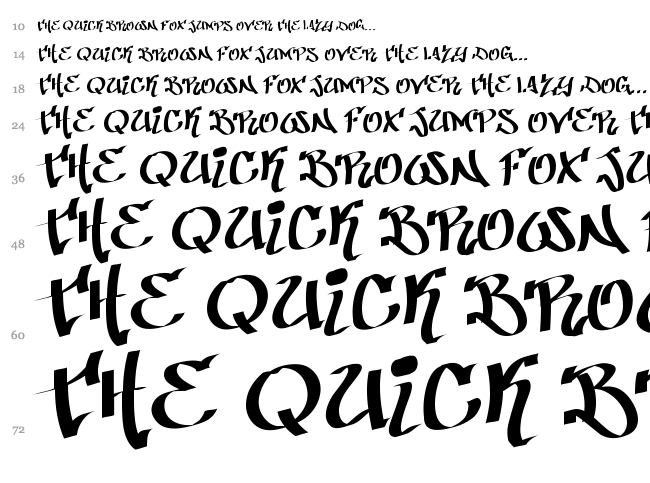 10 THE QUiCK BROWN FOX JUMPS OVER THE LAZY DOG...
14 THE QUiCK BROWN FOX JUMPS OVER THE LAZY DOG...
18 THE QUiCK BROWN FOX JUMPS OVER THE LAZY DOG...
24 THE QUiCK BROWN FOX JUMPS OVER T
36 THE QUiCK BROWN FOX JU
48 THE QUiCK BROWN
60 THE QUiCK BRO
72 THE QUiCK B